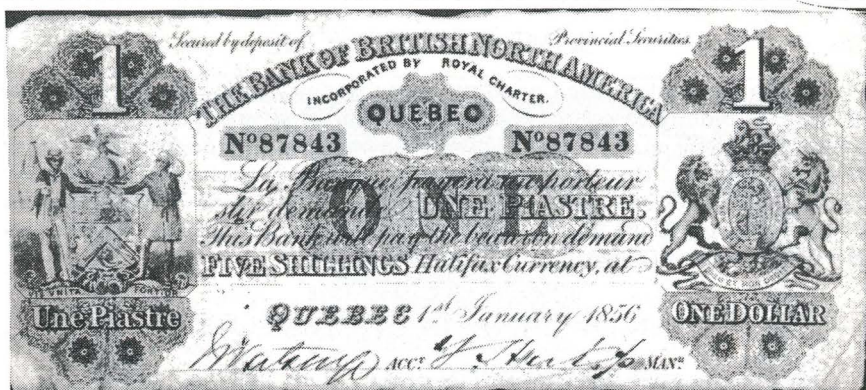 1 Secured by deposit of Provincial Securities. 1
THE BANK OF BRITISH NORTH AMERICA
INCORPORATED BY ROYAL CHARTER.
QUEBEC
Nº87843 Nº87843
La Banque payera au porteur
sur demande UNE PIASTRE.
ONE
This Bank will pay the bearer on demand
FIVE SHILLINGS Halifax Currency, at
QUEBEC 1st January 1856
Une Piastre ONE DOLLAR
ACCT MANR